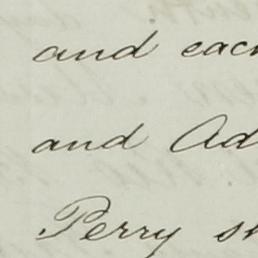 and each
and Ad
Perry s